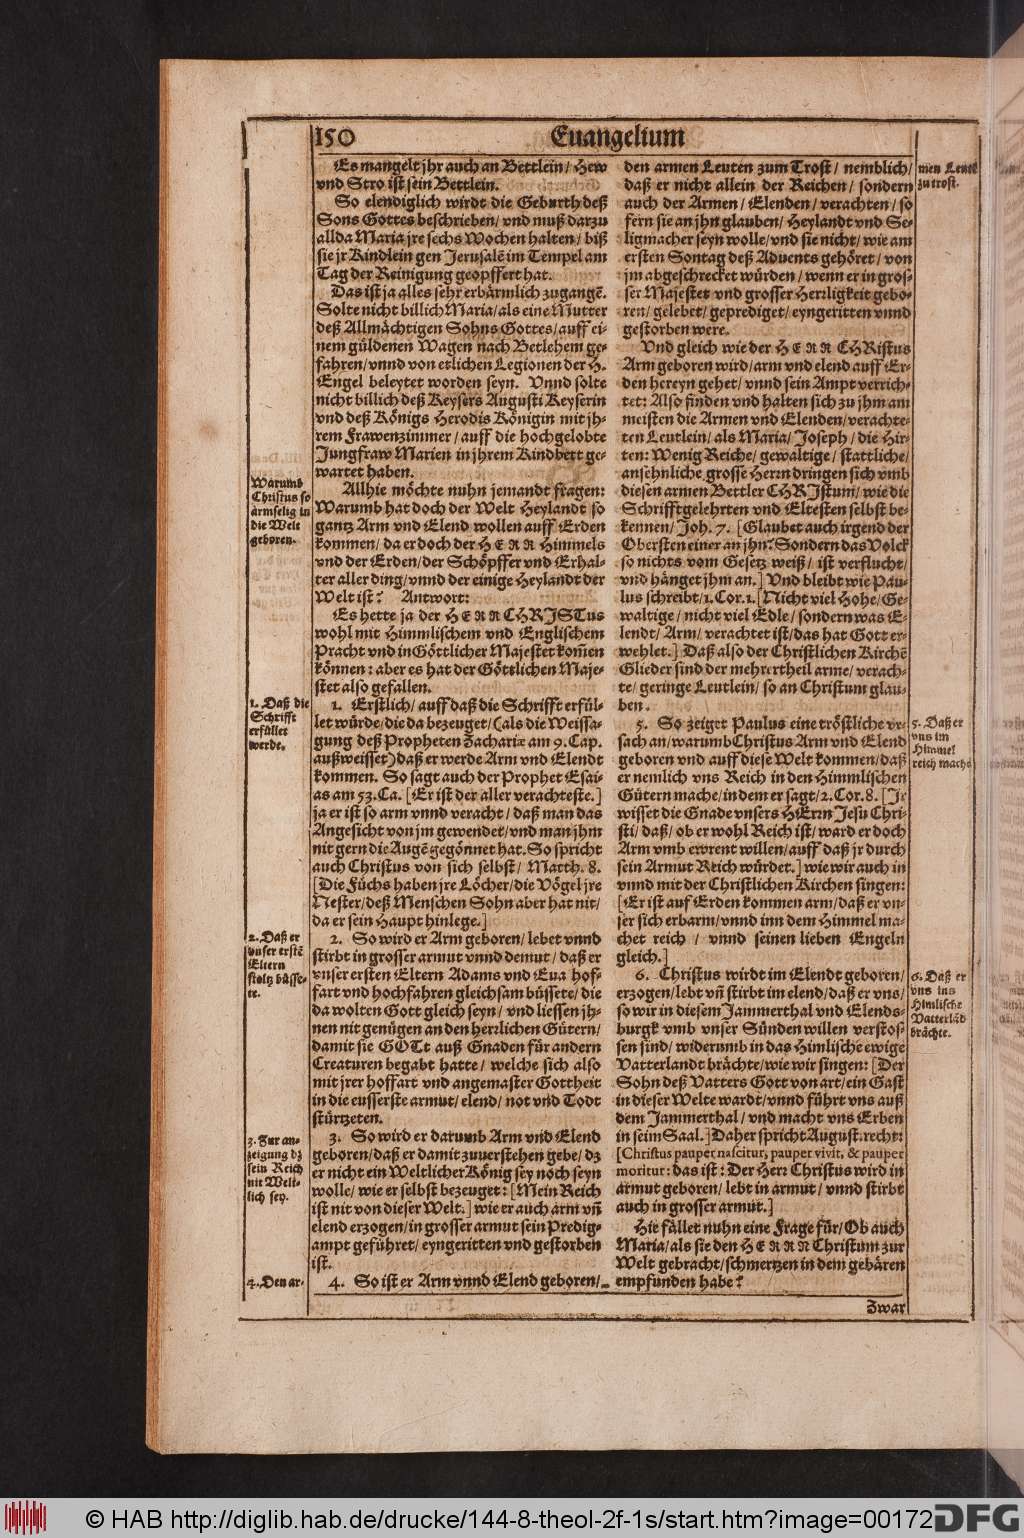 150
Euangelium
Es mangelt jhr auch an Bettlein/ Hew
vnd Stro ist sein Bettlein.
So elendiglich wirdt die Geburth deß
Sons Gottes beschrieben/ vnd muß darzu
allda Maria jre sechs Wochen halten/ biß
sie jr Kindlein gen Jerusalē im Tempel am
Tag der Reinigung geopffert hat.
Das ist ja alles sehr erbärmlich zugangē.
Solte nicht billich Maria/ als eine Mutter
deß Allmächtigen Sohns Gottes/ auff ei-
nem güldenen Wagen nach Betlehem ge-
fahren/ vnnd von etlichen Legionen der H.
Engel beleytet worden seyn. Vnnd solte
nicht billich deß Keysers Augusti Keyserin
vnd deß Königs Herodis Königin mit jh-
rem Frawenzimmer/ auff die hochgelobte
Jungfraw Marien in jhrem Kindbett ge-
wartet haben.
Warumb
Christus so
armselig in
die Welt
geboren.
Allhie möchte nuhn jemandt fragen:
Warumb hat doch der Welt Heylandt so
gantz Arm vnd Elend wollen auff Erden
kommen/ da er doch der HERR Himmels
vnd der Erden/ der Schöpffer vnd Erhal-
ter aller ding/ vnnd der einige Heylandt der
Welt ist? Antwort:
Es hette ja der HERR CHRISTus
wohl mit Himmlischem vnd Englischem
Pracht vnd in Göttlicher Majestet kom̄en
können: aber es hat der Göttlichen Maje-
stet also gefallen.
1. Daß die
Schrifft
erfüllet
werde.
1. Erstlich/ auff daß die Schrifft erfül-
let würde/ die da bezeuget/ (als die Weissa-
gung deß Propheten Zachariæ am 9. Cap.
außweisset) daß er werde Arm vnd Elendt
kommen. So sagt auch der Prophet Esai-
as am 53. Ca. [Er ist der aller verachteste.]
ja er ist so arm vnnd veracht/ daß man das
Angesicht von jm gewendet/ vnd man jhm
nit gern die Augē gegönnet hat. So spricht
auch Christus von sich selbst/ Matth. 8.
[Die Füchs haben jre Löcher/ die Vögel jre
Nester/ deß Menschen Sohn aber hat nit/
da er sein Haupt hinlege.]
2. Daß er
vnser erstē
Eltern
stoltz büsse-
te.
2. So wird er Arm geboren/ lebet vnnd
stirbt in grosser armut vnnd demut/ daß er
vnser ersten Eltern Adams vnd Eua hof-
fart vnd hochfahren gleichsam büssete/ die
da wolten Gott gleich seyn/ vnd liessen jh-
nen nit genügen an den herzlichen Gütern/
damit sie GOTt auß Gnaden für andern
Creaturen begabt hatte/ welche sich also
mit jrer hoffart vnd angemaster Gottheit
in die eusserste armut/ elend/ not vnd Todt
stürtzeten.
3. Zur an-
zeigung dz
sein Reich
nit Welt-
lich sey.
3. So wird er darumb Arm vnd Elend
geboren/ daß er damit zuuerstehen gebe/ dz
er nicht ein Weltlicher König sey noch seyn
wolle/ wie er selbst bezeuget: [Mein Reich
ist nit von dieser Welt.] wie er auch arm vn̄
elend erzogen/ in grosser armut sein Predig-
ampt geführet/ eyngeritten vnd gestorben
ist.
4. Den ar-
4. So ist er Arm vnnd Elend geboren/
men Leutē
zu trost.
den armen Leuten zum Trost/ nemblich/
daß er nicht allein der Reichen/ sondern
auch der Armen/ Elenden/ verachten/ so
fern sie an jhn glauben/ Heylandt vnd Se-
ligmacher seyn wolle/ vnd sie nicht/ wie am
ersten Sontag deß Aduents gehöret/ von
jm abgeschrecket würden/ wenn er in gros-
ser Majestet vnd grosser Herrligkeit gebo-
ren/ gelebet/ geprediget/ eyngeritten vnnd
gestorben were.
Vnd gleich wie der HERR CHRistus
Arm geboren wird/ arm vnd elend auff Er-
den hereyn gehet/ vnnd sein Ampt verrich-
tet: Also finden vnd halten sich zu jhm am
meisten die Armen vnd Elenden/ verachte-
ten Leutlein/ als Maria/ Joseph/ die Hir-
ten: Wenig Reiche/ gewaltige/ stattliche/
ansehnliche grosse Herrn dringen sich vmb
diesen armen Bettler CHRJstum/ wie die
Schrifftgelehrten vnd Eltesten selbst be-
kennen/ Joh. 7. [Glaubet auch irgend der
Obersten einer an jhn? Sondern das Volck
so nichts vom Gesetz weiß/ ist verflucht/
vnd hänget jhm an.] Vnd bleibt wie Pau-
lus schreibt/ 1. Cor. 1. [Nicht viel Hohe/ Ge-
waltige/ nicht viel Edle/ sondern was E-
lendt/ Arm/ verachtet ist/ das hat Gott er-
wehlet.] Daß also der Christlichen Kirchē
Glieder sind der mehrertheil arme/ verach-
te/ geringe Leutlein/ so an Christum glau-
ben.
5. Daß er
vns im
Himmel
reich mache
5. So zeiget Paulus eine tröstliche vr-
sach an/ warumb Christus Arm vnd Elend
geboren vnd auff diese Welt kommen/ daß
er nemlich vns Reich in den Himmlischen
Gütern mache/ indem er sagt/ 2. Cor. 8. [Jr
wisset die Gnade vnsers HErrn Jesu Chri-
sti/ daß/ ob er wohl Reich ist/ ward er doch
Arm vmb ewrent willen/ auff daß jr durch
sein Armut Reich würdet.] wie wir auch in
vnnd mit der Christlichen Kirchen singen:
[Er ist auf Erden kommen arm/ daß er vn-
ser sich erbarm/ vnnd inn dem Himmel ma-
chet reich/ vnnd seinen lieben Engeln
gleich.]
6. Daß er
vns ins
Him̄lische
Vatterlād
brächte.
6. Christus wirdt im Elendt geboren/
erzogen/ lebt vn̄ stirbt im elend/ daß er vns/
so wir in diesem Jammerthal vnd Elends-
burgk vmb vnser Sünden willen verstos-
sen sind/ widerumb in das Himlische ewige
Vatterlandt brächte/ wie wir singen: [Der
Sohn deß Vatters Gott von art/ ein Gast
in dieser Welte wardt/ vnnd führt vns auß
dem Jammerthal/ vnd macht vns Erben
in seim Saal.] Daher spricht August. recht:
[Christus pauper nascitur, pauper vivit, & pauper
moritur: das ist: Der Herr Christus wird in
armut geboren/ lebt in armut/ vnnd stirbt
auch in grosser armut.]
Hie fället nuhn eine Frage für/ Ob auch
Maria/ als sie den HERRN Christum zur
Welt gebracht/ schmertzen in dem gebären
empfunden habe?
Zwar
© HAB http://diglib.hab.de/drucke/144-8-theol-2f-1s/start.htm?image=00172
DFG